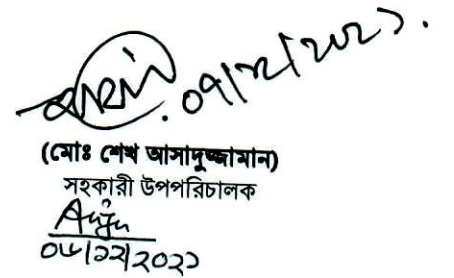 ০৭/১২/২০২১.
(মোঃ শেখ আসাদুজ্জামান)
সহকারী উপপরিচালক
০৬/১২/২০২১